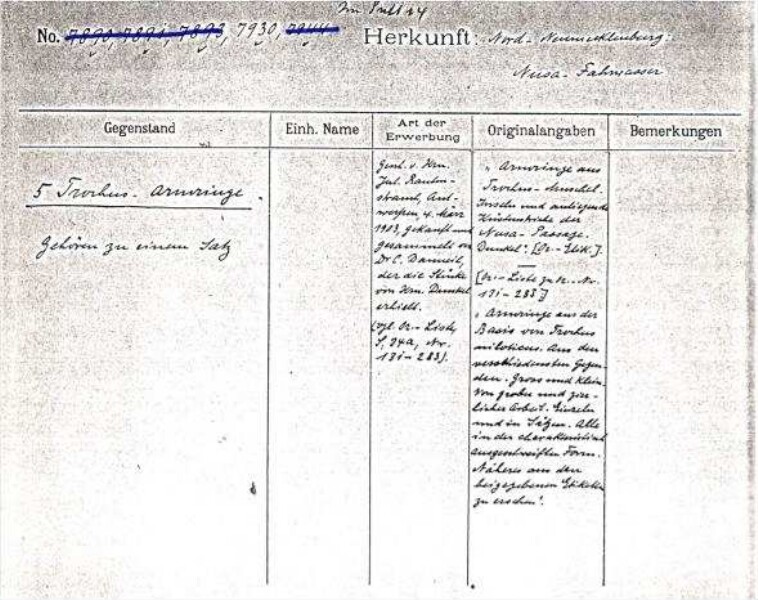 Im Pult 24
No. 7890, 7891, 7893, 7930, 7944 Herkunft: Nord-Neumecklenburg:
Nusa-Fahrwasser
Gegenstand
Einh. Name
Art der
Erwerbung
Originalangaben
Bemerkungen
5 Trochus-Armringe.
Gehören zu einem Satz
Gesch. v. Hrn.
Jul. Rauten-
strauch, Ant-
werpen, 4. März
1903, gekauft und
gesammelt von
Dr C. Danneil,
der die Stücke
von Hrn. Dunkel
erhielt.
(vgl. Or.-Liste,
S. 34a, Nr.
131-283).
"Armringe aus
Trochus-Muschel.
Inseln und anliegende
Küstenstriche der
Nusa-Passage.
Dunkel". [Or.-Etik.].
[Or.-Liste zu Or. Nr.
131-283]
"Armringe aus der
Basis von Trochus
niloticus. Aus den
verschiedensten Gegen-
den. Gross und klein.
Von grober und zier-
licher Arbeit. Einzeln
und in Sätzen. Alle
in der charakteristisch
ausgeschweiften Form.
Näheres aus den
beigegebenen Etiketten
zu ersehen".